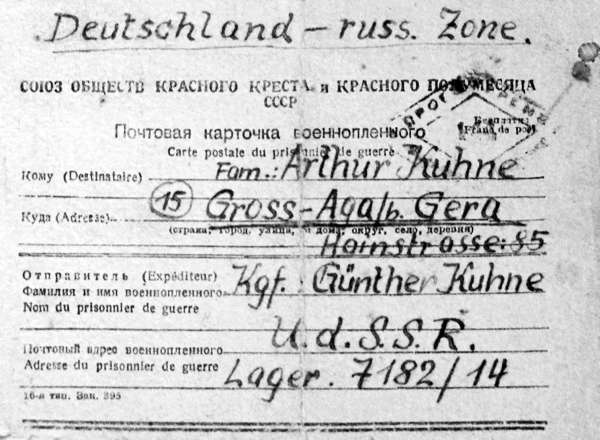 Deutschland – russ. Zone.
СОЮЗ ОБЩЕСТВ КРАСНОГО КРЕСТА и КРАСНОГО ПОЛУМЕСЯЦА
СССР
Бесплатно
Franc de port
Почтовая карточка военнопленного
Carte postale du prisonnier de guerre
Кому (Destinataire) Fam.: Arthur Kuhne
Куда (Adresse) (15) Gross-Aga/b. Gera
(страна, город, улица, № дома, округ, село, деревня)
Hainstrasse: 85
Отправитель (Expéditeur) Kgf.: Günther Kuhne
Фамилия и имя военнопленного
Nom du prisonnier de guerre
U.d.S.S.R.
Почтовый адрес военнопленного
Adresse du prisonnier de guerre Lager. 7182/14
16-я тип. Зак. 395